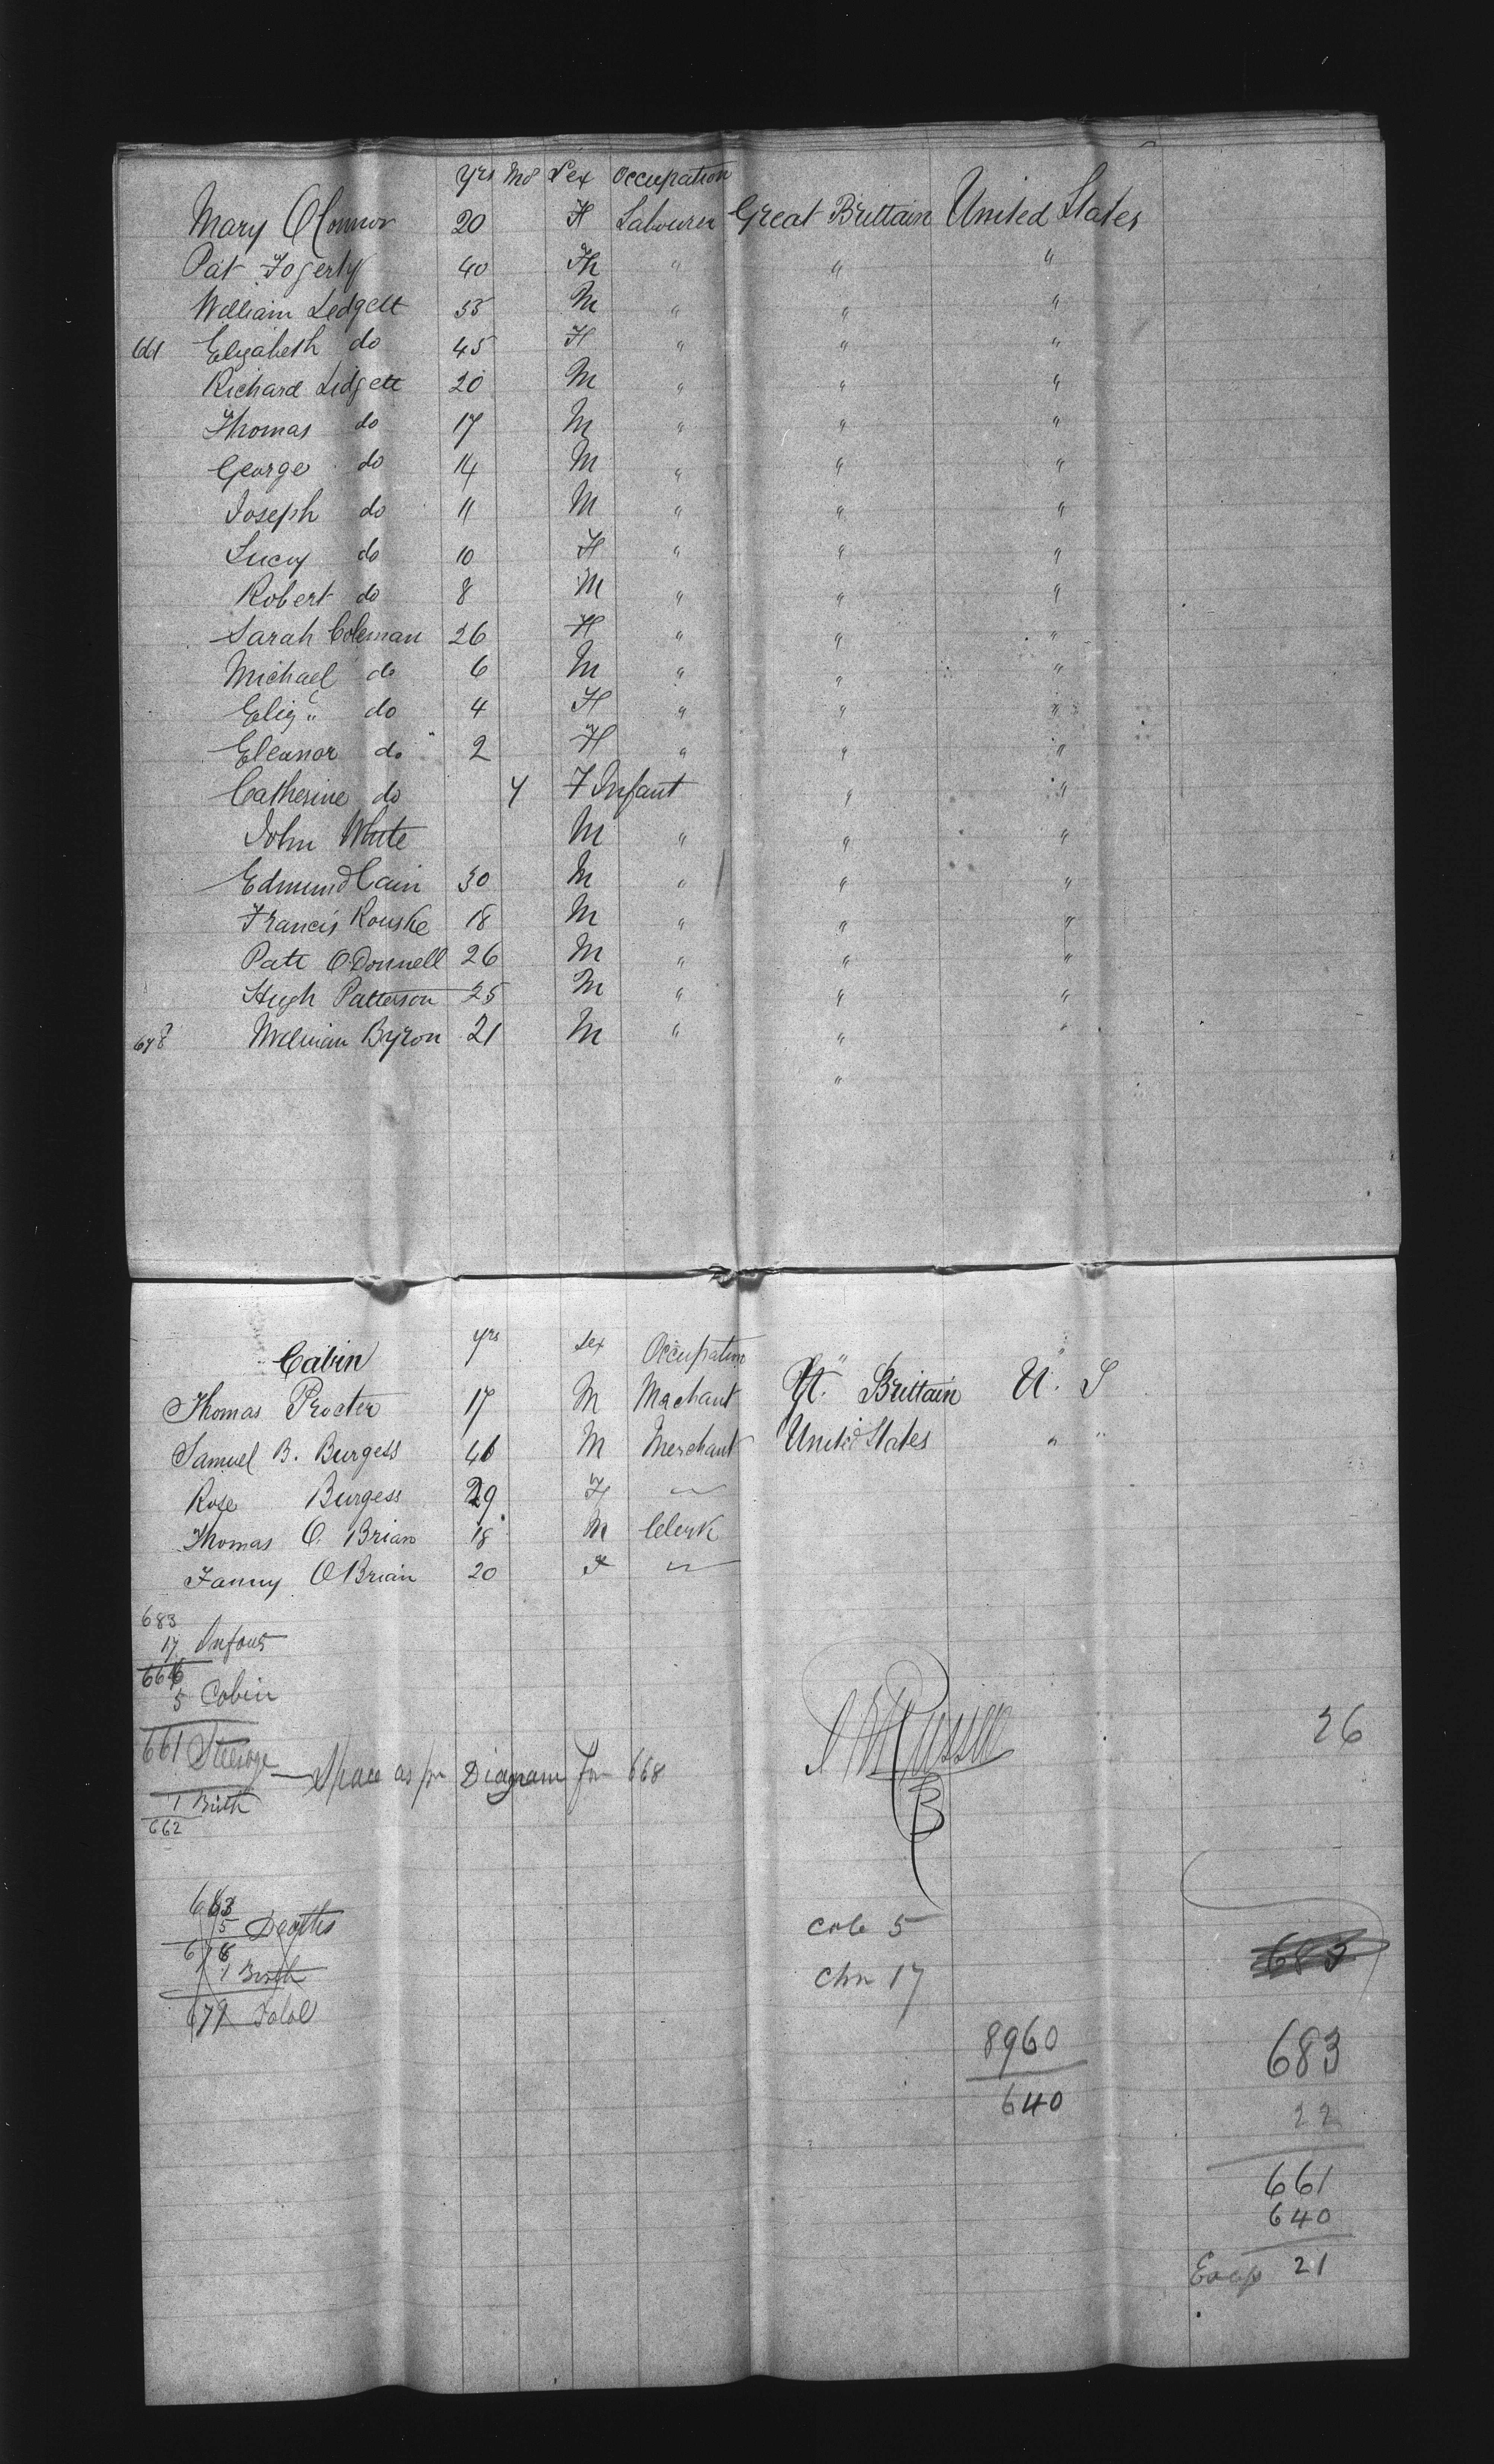 yrs Mo Sex Occupation
Mary OConnor 20 F Labourer Great Brittain United States
Pat Fogerty 40 M " " "
William Ledgett 55 M " " "
661 Elizabeth do 45 F " " "
Richard Ledgett 20 M " " "
Thomas do 17 M " " "
George do 14 M " " "
Joseph do 11 M " " "
Lucy do 10 F " " "
Robert do 8 M " " "
Sarah Coleman 26 F " " "
Michael do 6 M " " "
Eliz do 4 F " " "
Eleanor do 2 F " " "
Catherine do F Infant " "
John White M " " "
Edmund Cain 30 M " " "
Francis Rouske 18 M " " "
Patt O'Donnell 26 M " " "
Hugh Patterson 25 M " " "
678 William Byron 21 M " " "
"
Cabin yrs Sex Occupation
Thomas Procter 17 M Merchant Gt. Brittain U. S
Samuel B. Burgess 46 M Merchant United States " "
Rose Burgess 29 F "
Thomas O. Brian 18 M Clerk
Fanny OBrian 20 F "
683
17 Infants
666
5 Cabin
26
661 Steerage — Space as per Diagram for 668
1 Birth
662
683
5 Deaths
678
1 Birth
679 Total
cab 5
683
chn 17
8960
640
683
22
661
640
21